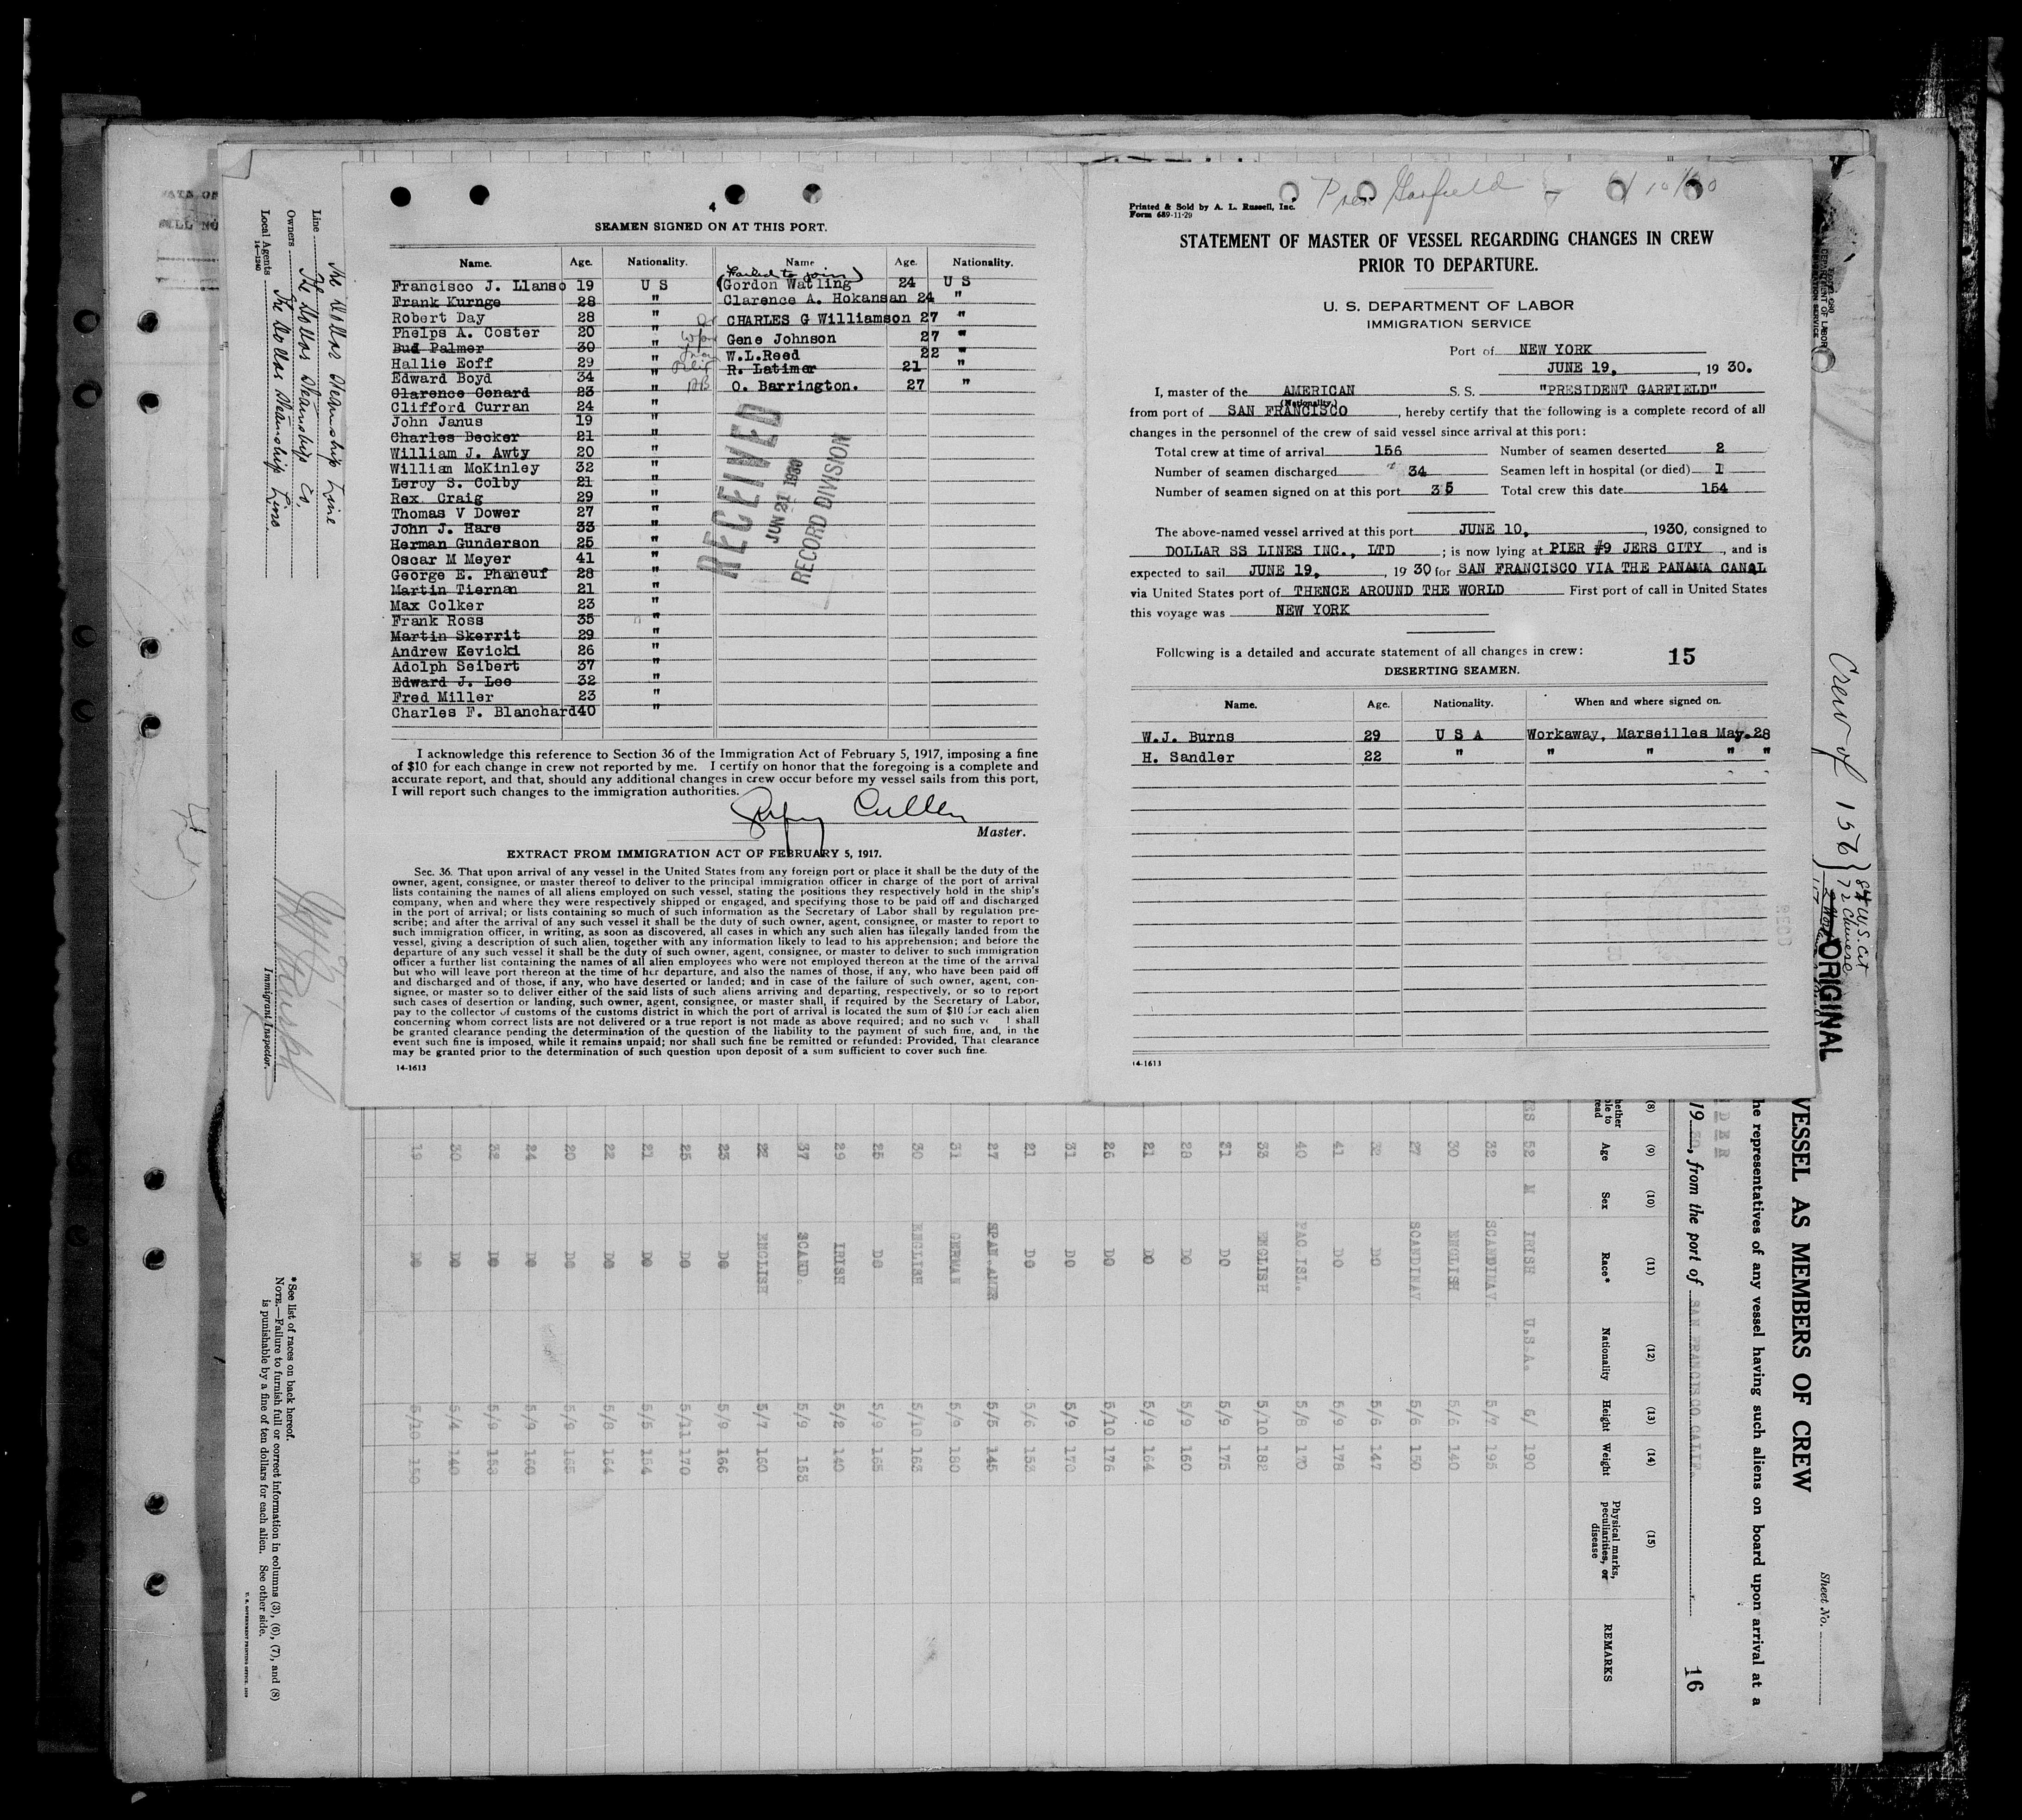 4
SEAMEN SIGNED ON AT THIS PORT.
Name. Age. Nationality. Name Age. Nationality.
(Failed to join)
Francisco J. Llanso 19 U S Gordon Watling 24 U S
Frank Kurnge 28 " Clarence A. Hokansan 24 "
Robert Day 28 " CHARLES G Williamson 27 "
Phelps A. Coster 20 " Gene Johnson 27 "
Bud Palmer 30 " W.L.Reed 22 "
Hallie Eoff 29 " R. Latimer 21 "
Edward Boyd 34 " O. Barrington. 27 "
Clarence Conard 23 "
Clifford Curran 24 "
John Janus 19 "
Charles Becker 21 "
William J. Awty 20 "
William McKinley 32 "
Leroy S. Colby 21 "
Rex Craig 29 "
Thomas V Dower 27 "
John J. Hare 33 "
Herman Gunderson 25 "
Oscar M Meyer 41 "
George E. Phaneuf 28 "
Martin Tiernan 21 "
Max Colker 23 "
Frank Ross 35 "
Martin Skerrit 29 "
Andrew Kevicki 26 "
Adolph Seibert 37 "
Edward J. Lee 32 "
Fred Miller 23 "
Charles F. Blanchard 40 "
RECEIVED
JUN 21 1930
RECORD DIVISION
I acknowledge this reference to Section 36 of the Immigration Act of February 5, 1917, imposing a fine
of $10 for each change in crew not reported by me. I certify on honor that the foregoing is a complete and
accurate report, and that, should any additional changes in crew occur before my vessel sails from this port,
I will report such changes to the immigration authorities.
Cullen
Master.
EXTRACT FROM IMMIGRATION ACT OF FEBRUARY 5, 1917.
Sec. 36. That upon arrival of any vessel in the United States from any foreign port or place it shall be the duty of the
owner, agent, consignee, or master thereof to deliver to the principal immigration officer in charge of the port of arrival
lists containing the names of all aliens employed on such vessel, stating the positions they respectively hold in the ship's
company, when and where they were respectively shipped or engaged, and specifying those to be paid off and discharged
in the port of arrival; or lists containing so much of such information as the Secretary of Labor shall by regulation pre-
scribe; and after the arrival of any such vessel it shall be the duty of such owner, agent, consignee, or master to report to
such immigration officer, in writing, as soon as discovered, all cases in which any such alien has illegally landed from the
vessel, giving a description of such alien, together with any information likely to lead to his apprehension; and before the
departure of any such vessel it shall be the duty of such owner, agent, consignee, or master to deliver to such immigration
officer a further list containing the names of all alien employees who were not employed thereon at the time of the arrival
but who will leave port thereon at the time of her departure, and also the names of those, if any, who have been paid off
and discharged and of those, if any, who have deserted or landed; and in case of the failure of such owner, agent, con-
signee, or master so to deliver either of the said lists of such aliens arriving and departing, respectively, or so to report
such cases of desertion or landing, such owner, agent, consignee, or master shall, if required by the Secretary of Labor,
pay to the collector of customs of the customs district in which the port of arrival is located the sum of $10 for each alien
concerning whom correct lists are not delivered or a true report is not made as above required; and no such shall
be granted clearance pending the determination of the question of the liability to the payment of such fine, and, in the
event such fine is imposed, while it remains unpaid; nor shall such fine be remitted or refunded: Provided, That clearance
may be granted prior to the determination of such question upon deposit of a sum sufficient to cover such fine.
14-1613
Pres Garfield - 6/10/30
Printed & Sold by A. L. Russell, Inc.
Form 689-11-29
STATEMENT OF MASTER OF VESSEL REGARDING CHANGES IN CREW
PRIOR TO DEPARTURE.
U. S. DEPARTMENT OF LABOR
IMMIGRATION SERVICE
Port of NEW YORK
JUNE 19, 19 30.
I, master of the AMERICAN S. S. "PRESIDENT GARFIELD"
(Nationality.)
from port of SAN FRANCISCO, hereby certify that the following is a complete record of all
changes in the personnel of the crew of said vessel since arrival at this port:
Total crew at time of arrival 156 Number of seamen deserted 2
Number of seamen discharged 34 Seamen left in hospital (or died) 1
Number of seamen signed on at this port 35 Total crew this date 154
The above-named vessel arrived at this port JUNE 10, 1930, consigned to
DOLLAR SS LINES INC., LTD ; is now lying at PIER #9 JERS CITY, and is
expected to sail JUNE 19, 19 30 for SAN FRANCISCO VIA THE PANAMA CANAL
via United States port of THENCE AROUND THE WORLD First port of call in United States
this voyage was NEW YORK
Following is a detailed and accurate statement of all changes in crew: 15
DESERTING SEAMEN.
Name. Age. Nationality. When and where signed on.
W.J. Burns 29 U S A Workaway, Marseilles May.28
H. Sandler 22 " " " " "
14-1613
Line The Dollar Steamship Line
Owners The Dollar Steamship Co.
Local Agents The Dollar Steamship Line
14-1240
Immigrant Inspector.
*See list of races on back hereof.
NOTE.—Failure to furnish full or correct information in columns (3), (6), (7), and (8)
is punishable by a fine of ten dollars for each alien. See other side.
U. S. GOVERNMENT PRINTING OFFICE: 1929
Crew of 156
84 U.S. Cit
72 Chinese
ORIGINAL
Sheet No.
VESSEL AS MEMBERS OF CREW
he representatives of any vessel having such aliens on board upon arrival at a
19 30, from the port of SAN FRANCISCO CALIF.
16
(8) (9) (10) (11) (12) (13) (14) (15)
Age Sex Race* Nationality Height Weight Physical marks, peculiarities, or disease REMARKS
52 M IRISH U.S.A. 6/ 190
32 SCANDINAV. 5/7 195
30 ENGLISH 5/6 140
27 SCANDINAV 5/6 150
32 DO 5/6 147
41 DO 5/9 178
40 PAC.ISL. 5/8 170
33 ENGLISH 5/10 182
21 DO 5/9 175
28 DO 5/9 160
21 DO 5/9 164
26 DO 5/10 176
31 DO 5/9 170
21 DO 5/6 153
27 SPAN.AMER 5/5 145
31 GERMAN 5/9 180
30 ENGLISH 5/10 163
25 DO 5/9 165
29 IRISH 5/2 140
37 SCAND. 5/9 153
22 ENGLISH 5/7 160
23 DO 5/9 166
25 DO 5/11 170
21 DO 5/5 154
22 DO 5/8 164
20 DO 5/9 165
24 DO 5/9 160
32 DO 5/9 153
30 DO 5/4 140
19 DO 5/10 150